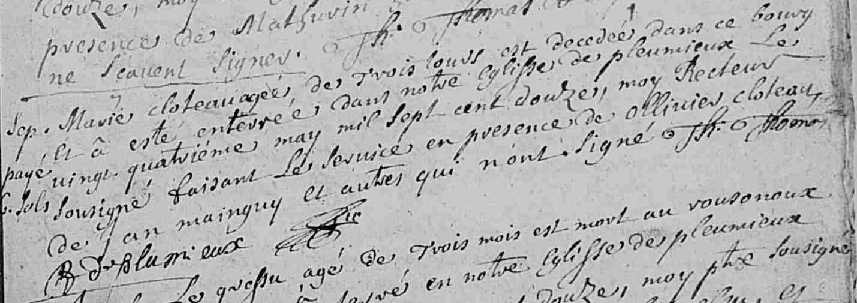 douze, moy
presence de Mathurin
ne scavent signer. Jh. Thomas
Sep. Marie cloteau agée de trois jours est decedée dans ce bourg
et a esté enterrée dans notre Eglisse de pleumieux Le
payé vingt quatriéme may mil sept cent douze, moy Recteur
6. sols sousigné faisant Le service en presence de ollivier cloteau,
de jan mainguy et autres qui n'ont signé Jh. Thomas
R de plumieux
Le gressu agé de trois mois est mort au vousonoux
en notre Eglisse de pleumieux
douze, moy ptre sousigné
et